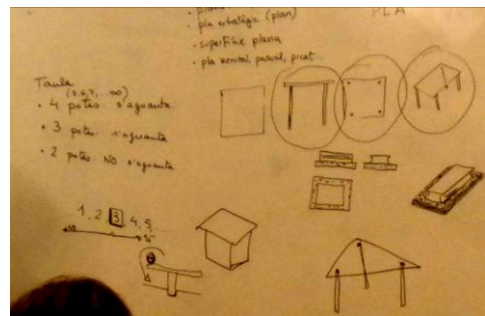 · pla estratègic (plan)
PLA
· superfície plana
· pla zenital, parcial, picat...
Taula
· 4 potes s'aguanta
· 3 potes s'aguanta
· 2 potes NO s'aguanta
1, 2, 3, 4, 5...